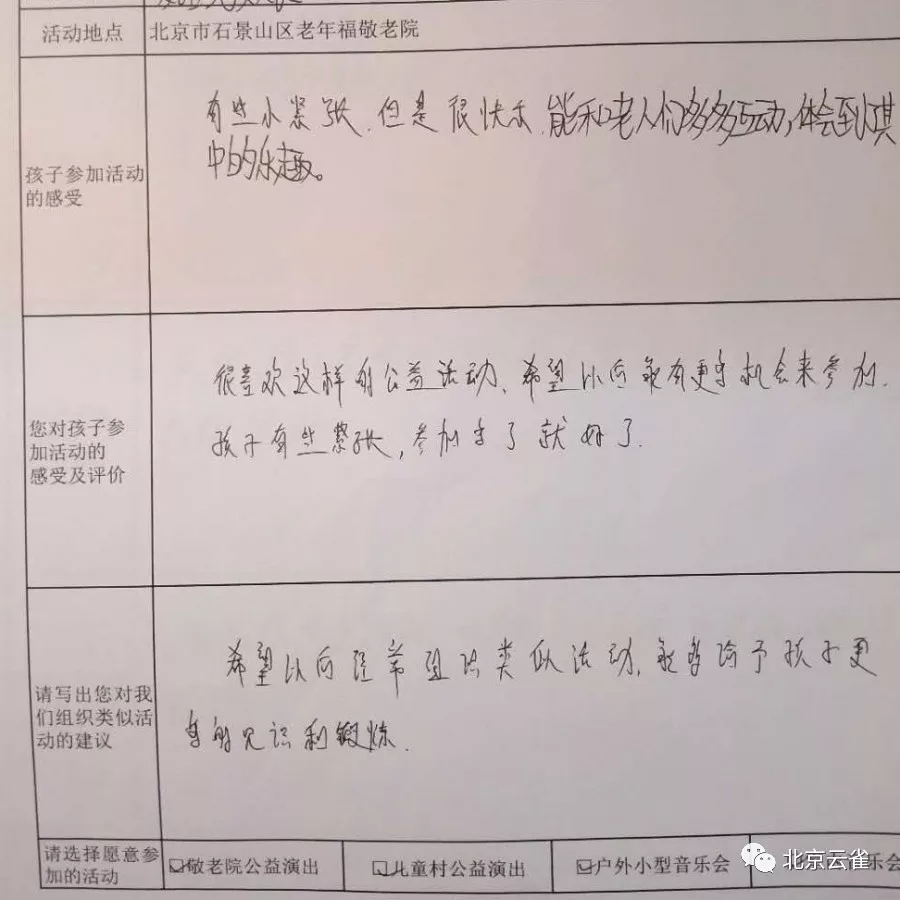 活动地点 北京市石景山区老年福敬老院
孩子参加活动
的感受
有些小紧张.但是很快乐.能和老人们多多互动,体会到其
中的乐趣。
您对孩子参
加活动的
感受及评价
很喜欢这样的公益活动、希望以后能有更多机会来参加.
孩子有些紧张,参加多了就好了.
请写出您对我
们组织类似活
动的建议
希望以后经常组织类似活动,能多给予孩子更
多的见识和锻炼.
请选择愿意参
加的活动
☑敬老院公益演出 ☑儿童村公益演出 ☑户外小型音乐会 乐会
北京云雀